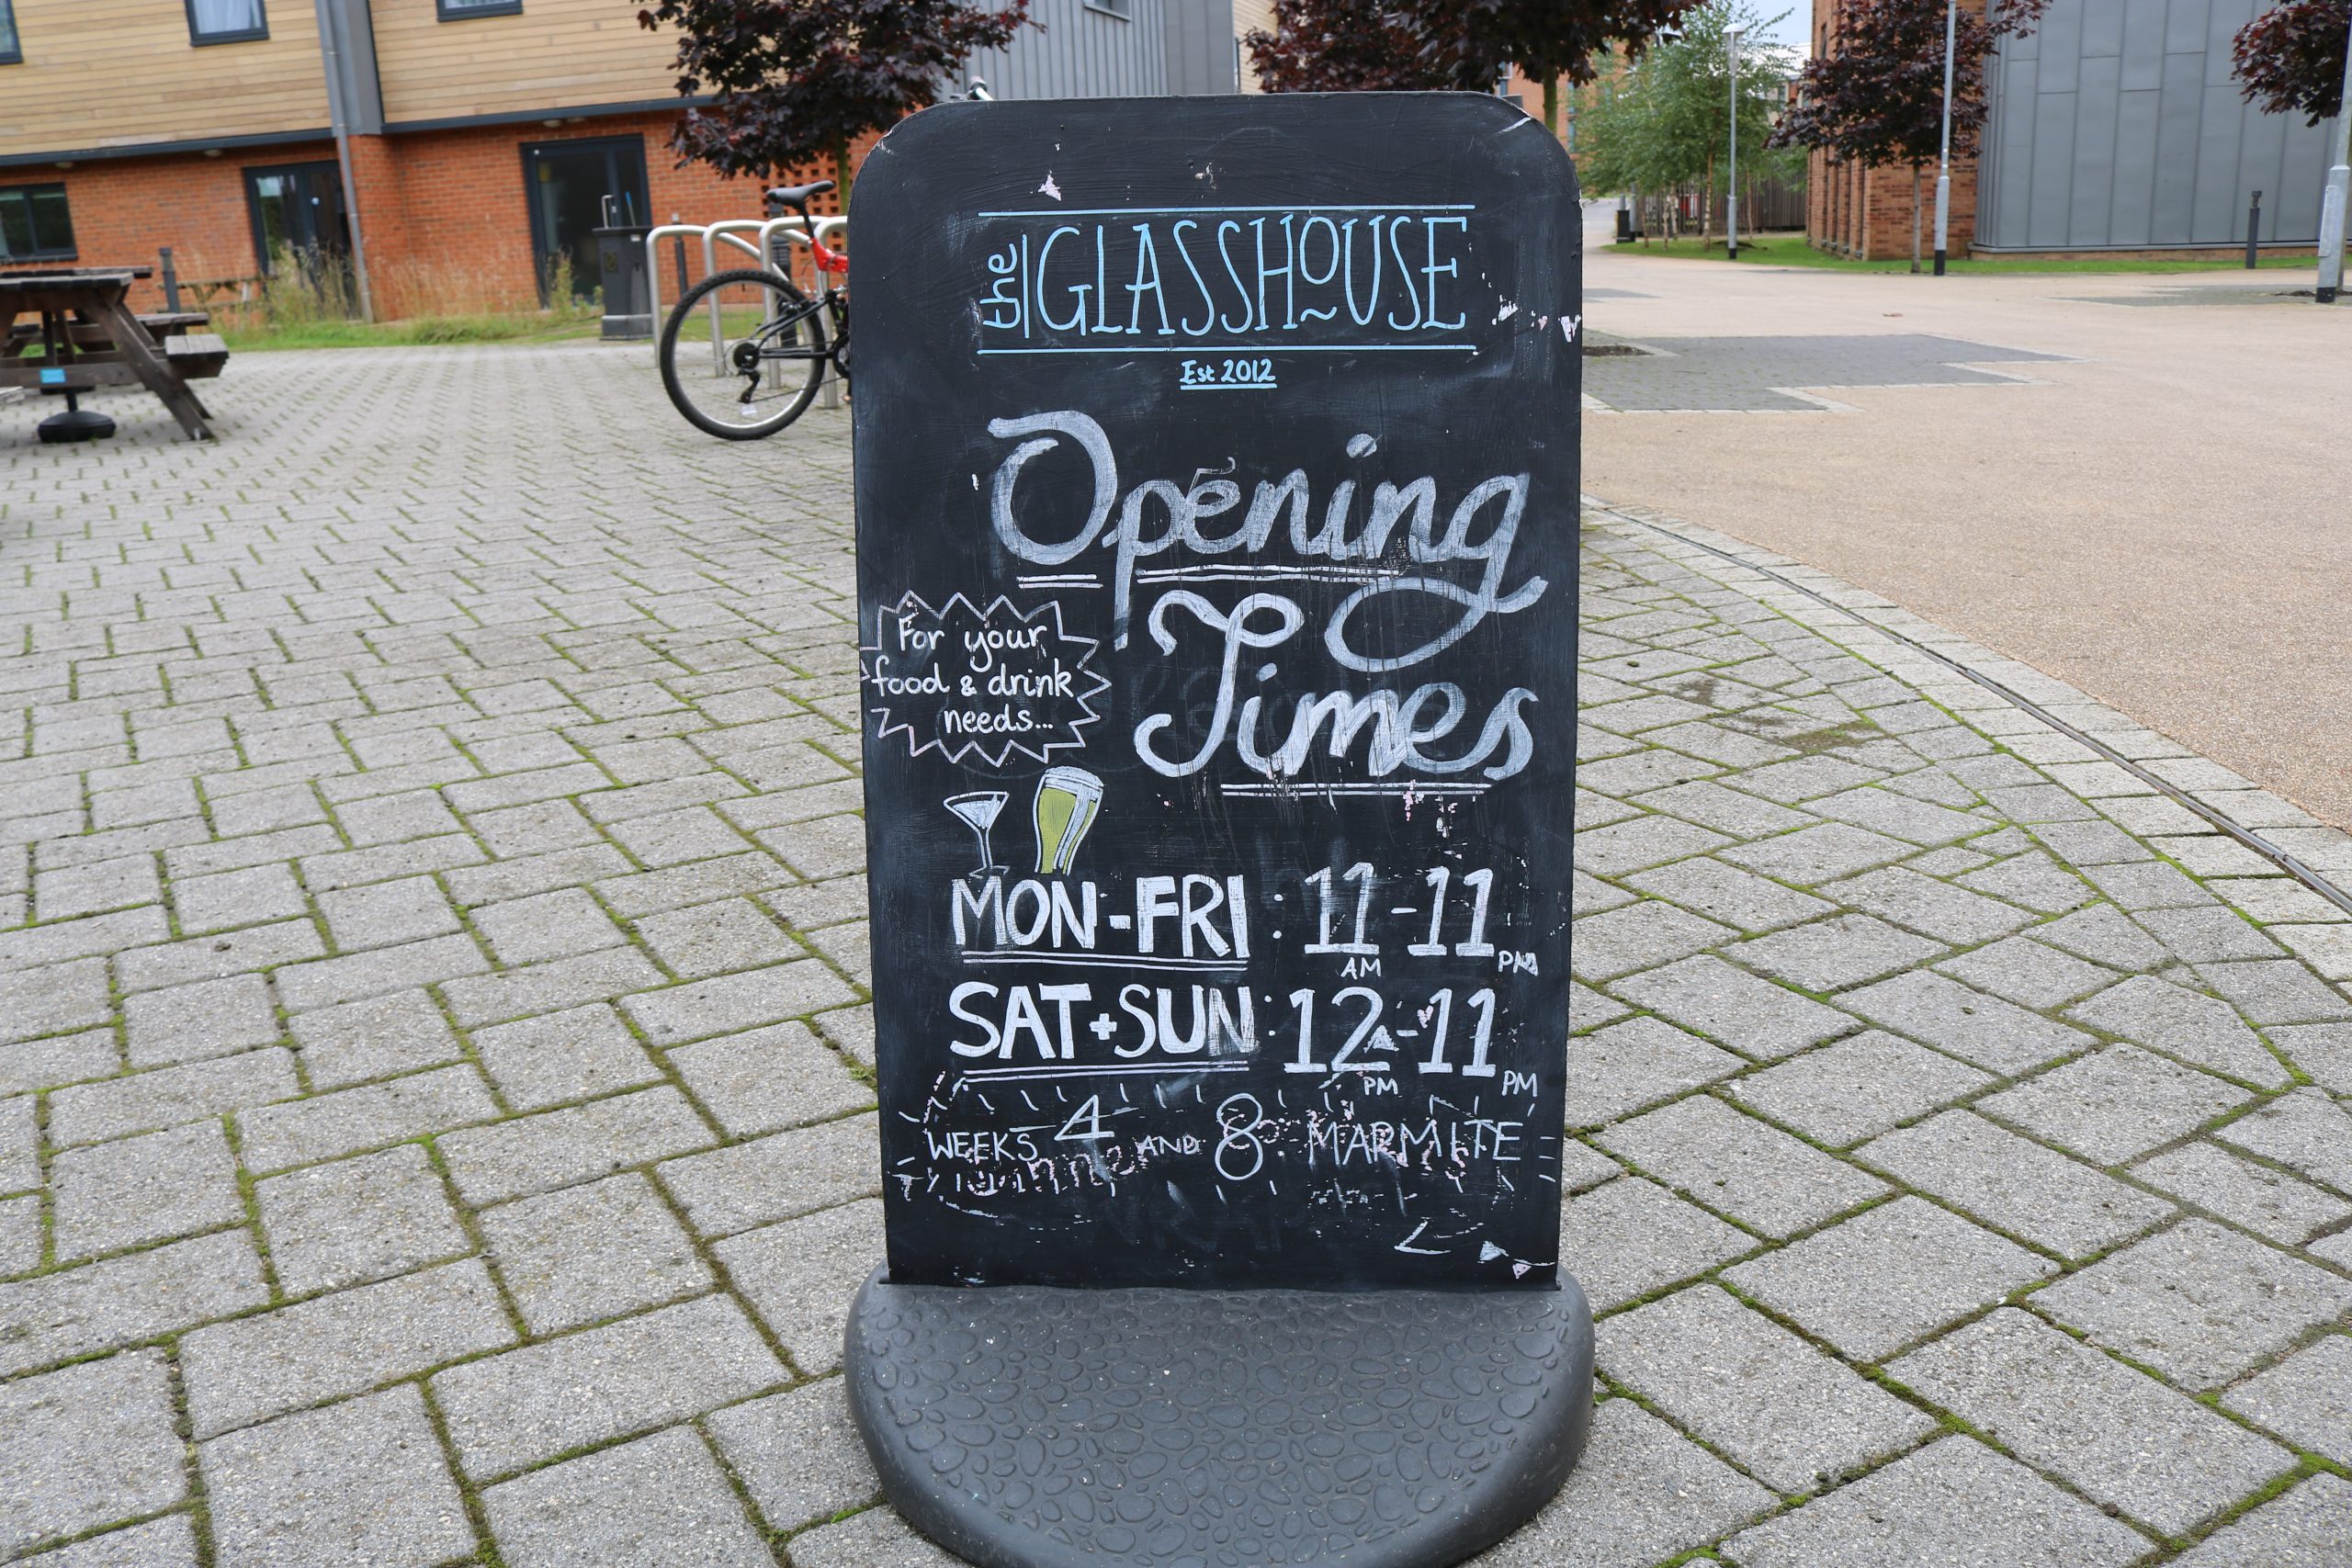 the GLASSHOUSE
Est 2012
Opening
Times
For your
food & drink
needs...
MON-FRI : 11AM-11PM
SAT+SUN : 12PM-11PM
WEEKS 4 AND 8: MARMITE